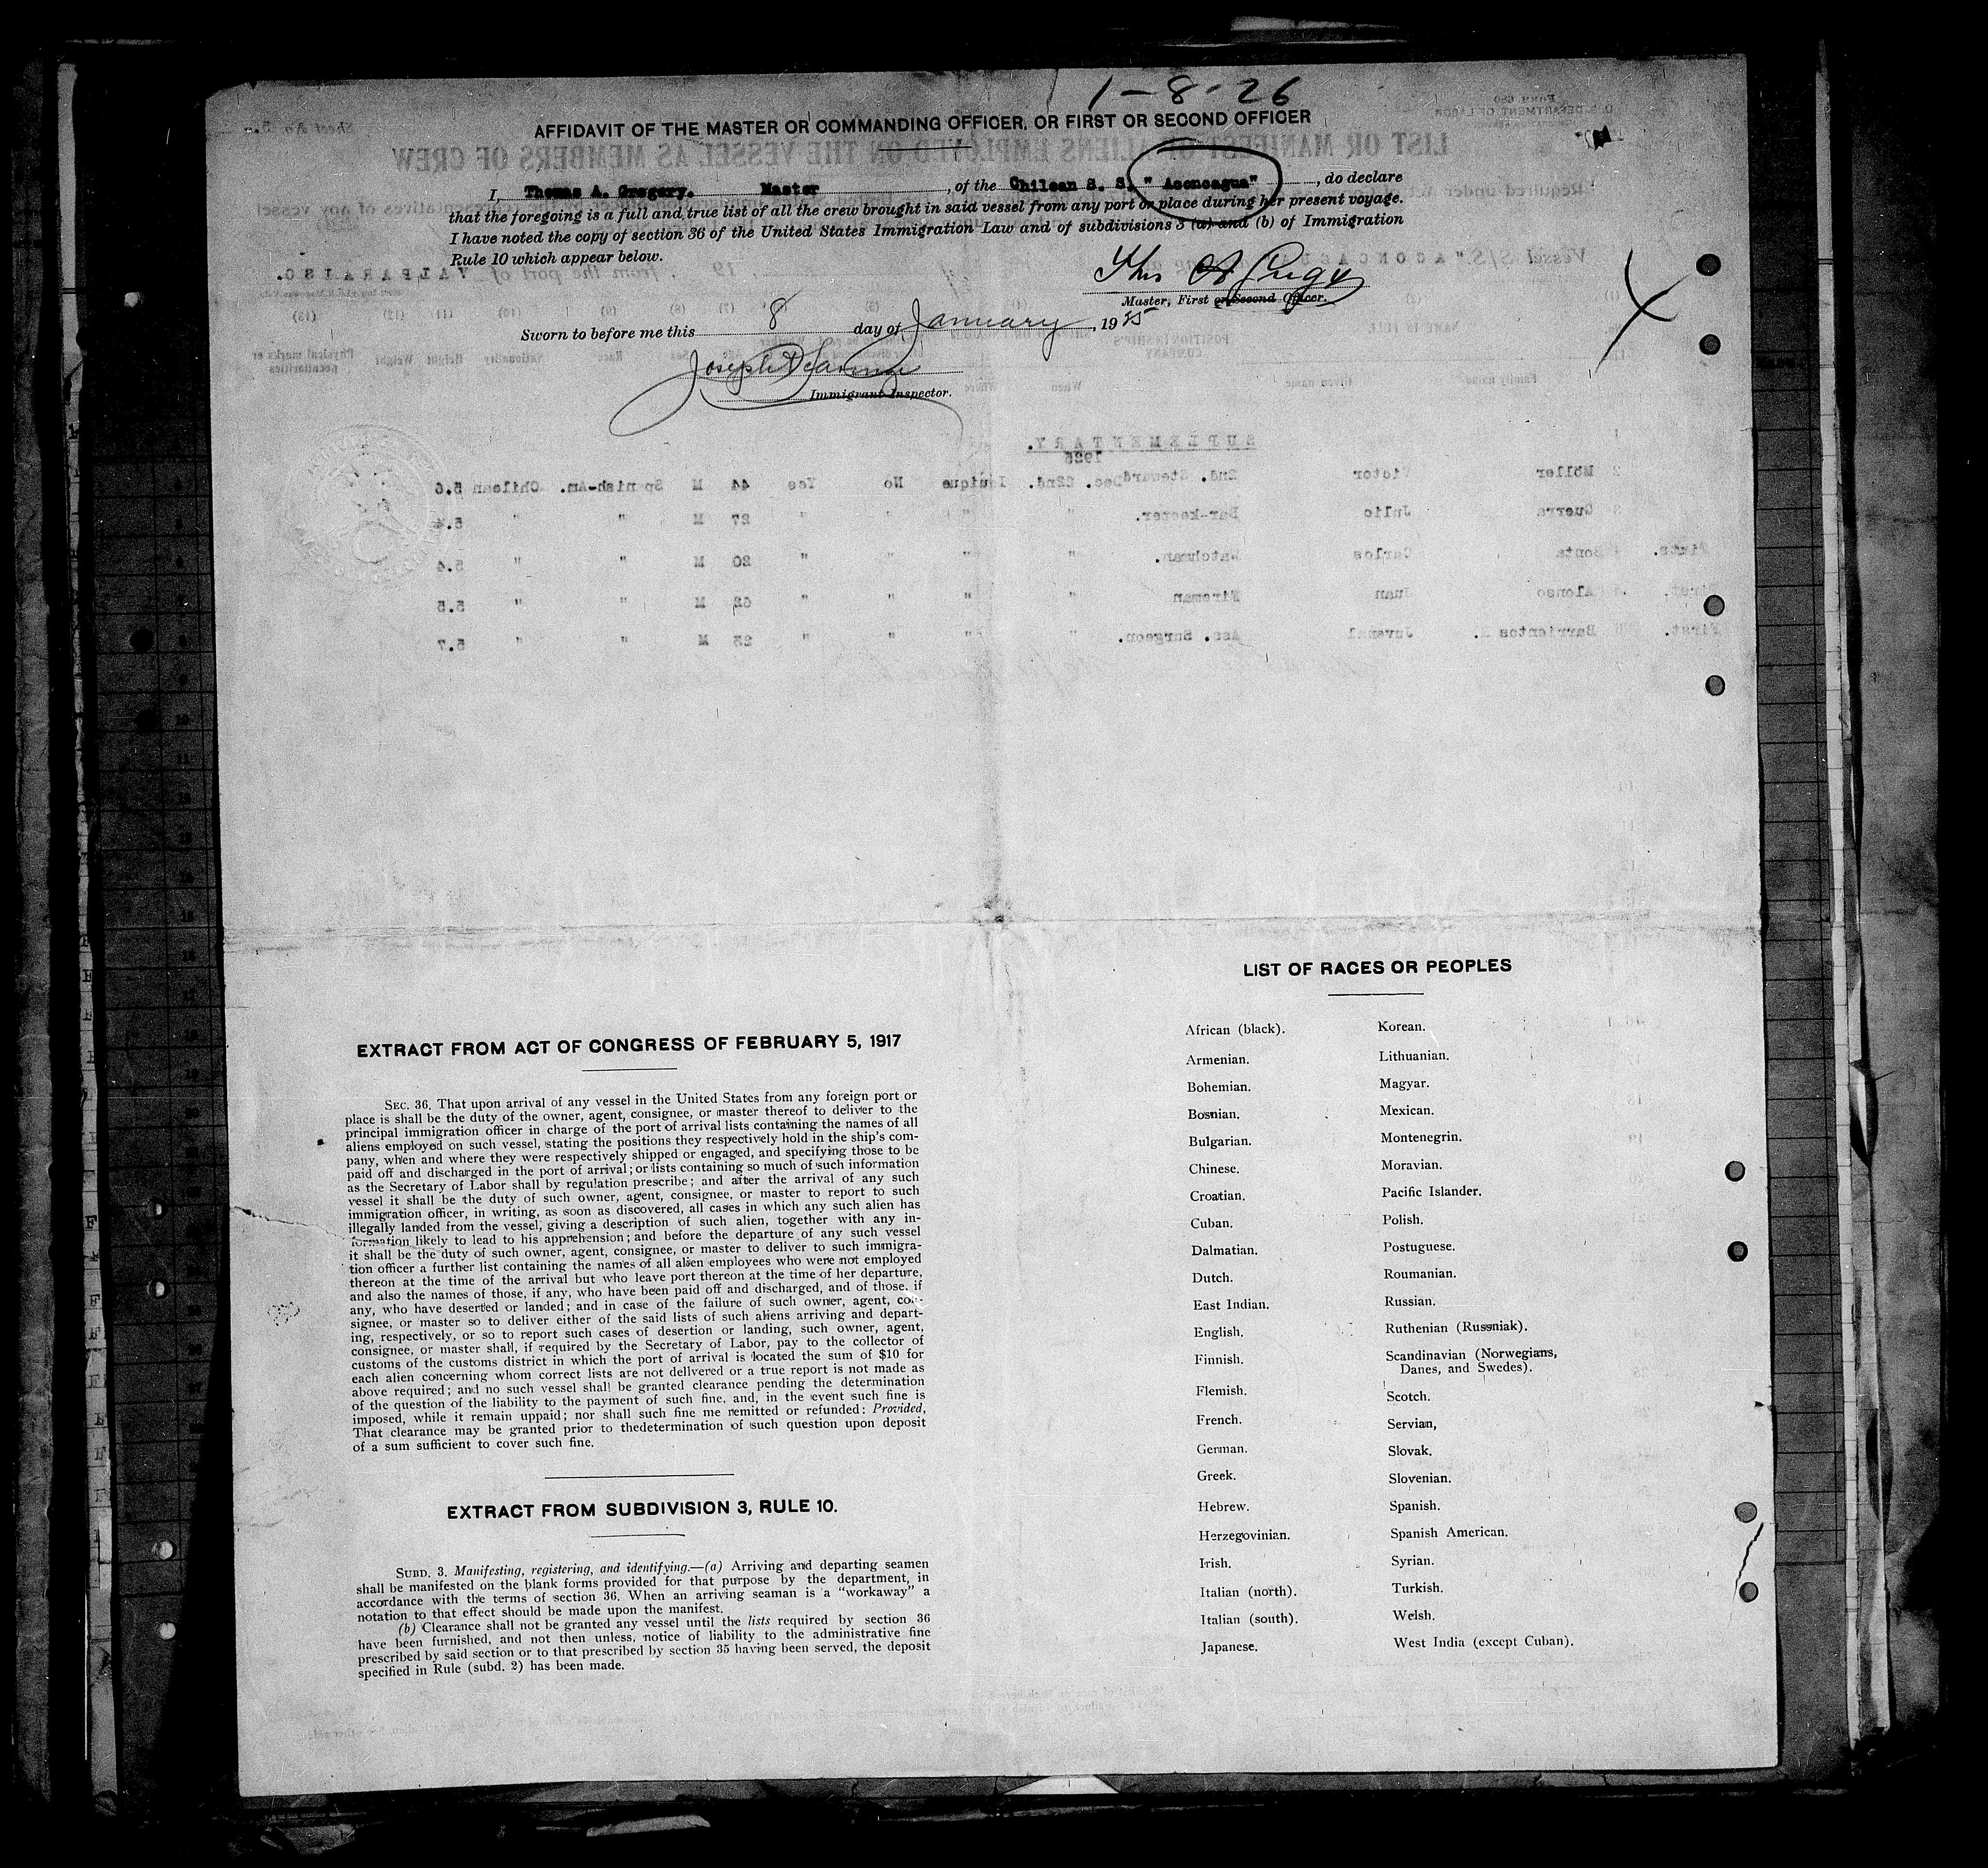 1-8-26
AFFIDAVIT OF THE MASTER OR COMMANDING OFFICER, OR FIRST OR SECOND OFFICER
I, Thomas A. Gregory. Master, of the Chilean S. S. " Aconcagua", do declare
that the foregoing is a full and true list of all the crew brought in said vessel from any port or place during her present voyage.
I have noted the copy of section 36 of the United States Immigration Law and of subdivisions 3 (a) and (b) of Immigration
Rule 10 which appear below.
Master, First or Second Officer.
Sworn to before me this 8 day of January, 19
Joseph
Immigrant Inspector.
Sheet No. 5.
FORM 680
U. S. DEPARTMENT OF LABOR
LIST OR MANIFEST OF ALIENS EMPLOYED ON THE VESSEL AS MEMBERS OF CREW
Vessel S/S. "ACONCAGUA" , from the port of VALPARAISO.
SUPLEMENTARY.
1925
2 Möller Victor 2nd. Steward Dec. 22nd. Iquique No Yes 44 M Spanish-Am. Chilean 5.6
3 Guerra Julio Bar-keeper. " " " " 27 M " " 5.4
Bonta Carlos Watchman. " " " " 20 M " " 5.4
Alonso Juan Fireman " " " " M " " 5.5
First. Barrientos Juvenal Ass. Surgeon. " " " " 25 M " " 5.7
EXTRACT FROM ACT OF CONGRESS OF FEBRUARY 5, 1917
SEC. 36. That upon arrival of any vessel in the United States from any foreign port or
place is shall be the duty of the owner, agent, consignee, or master thereof to deliver to the
principal immigration officer in charge of the port of arrival lists containing the names of all
aliens employed on such vessel, stating the positions they respectively hold in the ship's com-
pany, when and where they were respectively shipped or engaged, and specifying those to be
paid off and discharged in the port of arrival; or lists containing so much of such information
as the Secretary of Labor shall by regulation prescribe; and after the arrival of any such
vessel it shall be the duty of such owner, agent, consignee, or master to report to such
immigration officer, in writing, as soon as discovered, all cases in which any such alien has
illegally landed from the vessel, giving a description of such alien, together with any in-
formation likely to lead to his apprehension; and before the departure of any such vessel
it shall be the duty of such owner, agent, consignee, or master to deliver to such immigra-
tion officer a further list containing the names of all alien employees who were not employed
thereon at the time of the arrival but who leave port thereon at the time of her departure,
and also the names of those, if any, who have been paid off and discharged, and of those, if
any, who have deserted or landed; and in case of the failure of such owner, agent, con-
signee, or master so to deliver either of the said lists of such aliens arriving and depart-
ing, respectively, or so to report such cases of desertion or landing, such owner, agent,
consignee, or master shall, if required by the Secretary of Labor, pay to the collector of
customs of the customs district in which the port of arrival is located the sum of $10 for
each alien concerning whom correct lists are not delivered or a true report is not made as
above required; and no such vessel shall be granted clearance pending the determination
of the question of the liability to the payment of such fine, and, in the event such fine is
imposed, while it remain uppaid; nor shall such fine me remitted or refunded: Provided,
That clearance may be granted prior to thedetermination of such question upon deposit
of a sum sufficient to cover such fine.
EXTRACT FROM SUBDIVISION 3, RULE 10.
SUBD. 3. Manifesting, registering, and identifying.—(a) Arriving and departing seamen
shall be manifested on the blank forms provided for that purpose by the department, in
accordance with the terms of section 36. When an arriving seaman is a "workaway" a
notation to that effect should be made upon the manifest.
(b) Clearance shall not be granted any vessel until the lists required by section 36
have been furnished, and not then unless, notice of liability to the administrative fine
prescribed by said section or to that prescribed by section 35 having been served, the deposit
specified in Rule (subd. 2) has been made.
LIST OF RACES OR PEOPLES
African (black).
Armenian.
Bohemian.
Bosnian.
Bulgarian.
Chinese.
Croatian.
Cuban.
Dalmatian.
Dutch.
East Indian.
English.
Finnish.
Flemish.
French.
German.
Greek.
Hebrew.
Herzegovinian.
Irish.
Italian (north).
Italian (south).
Japanese.
Korean.
Lithuanian.
Magyar.
Mexican.
Montenegrin.
Moravian.
Pacific Islander.
Polish.
Postuguese.
Roumanian.
Russian.
Ruthenian (Russniak).
Scandinavian (Norwegians,
Danes, and Swedes).
Scotch.
Servian,
Slovak.
Slovenian.
Spanish.
Spanish American.
Syrian.
Turkish.
Welsh.
West India (except Cuban).